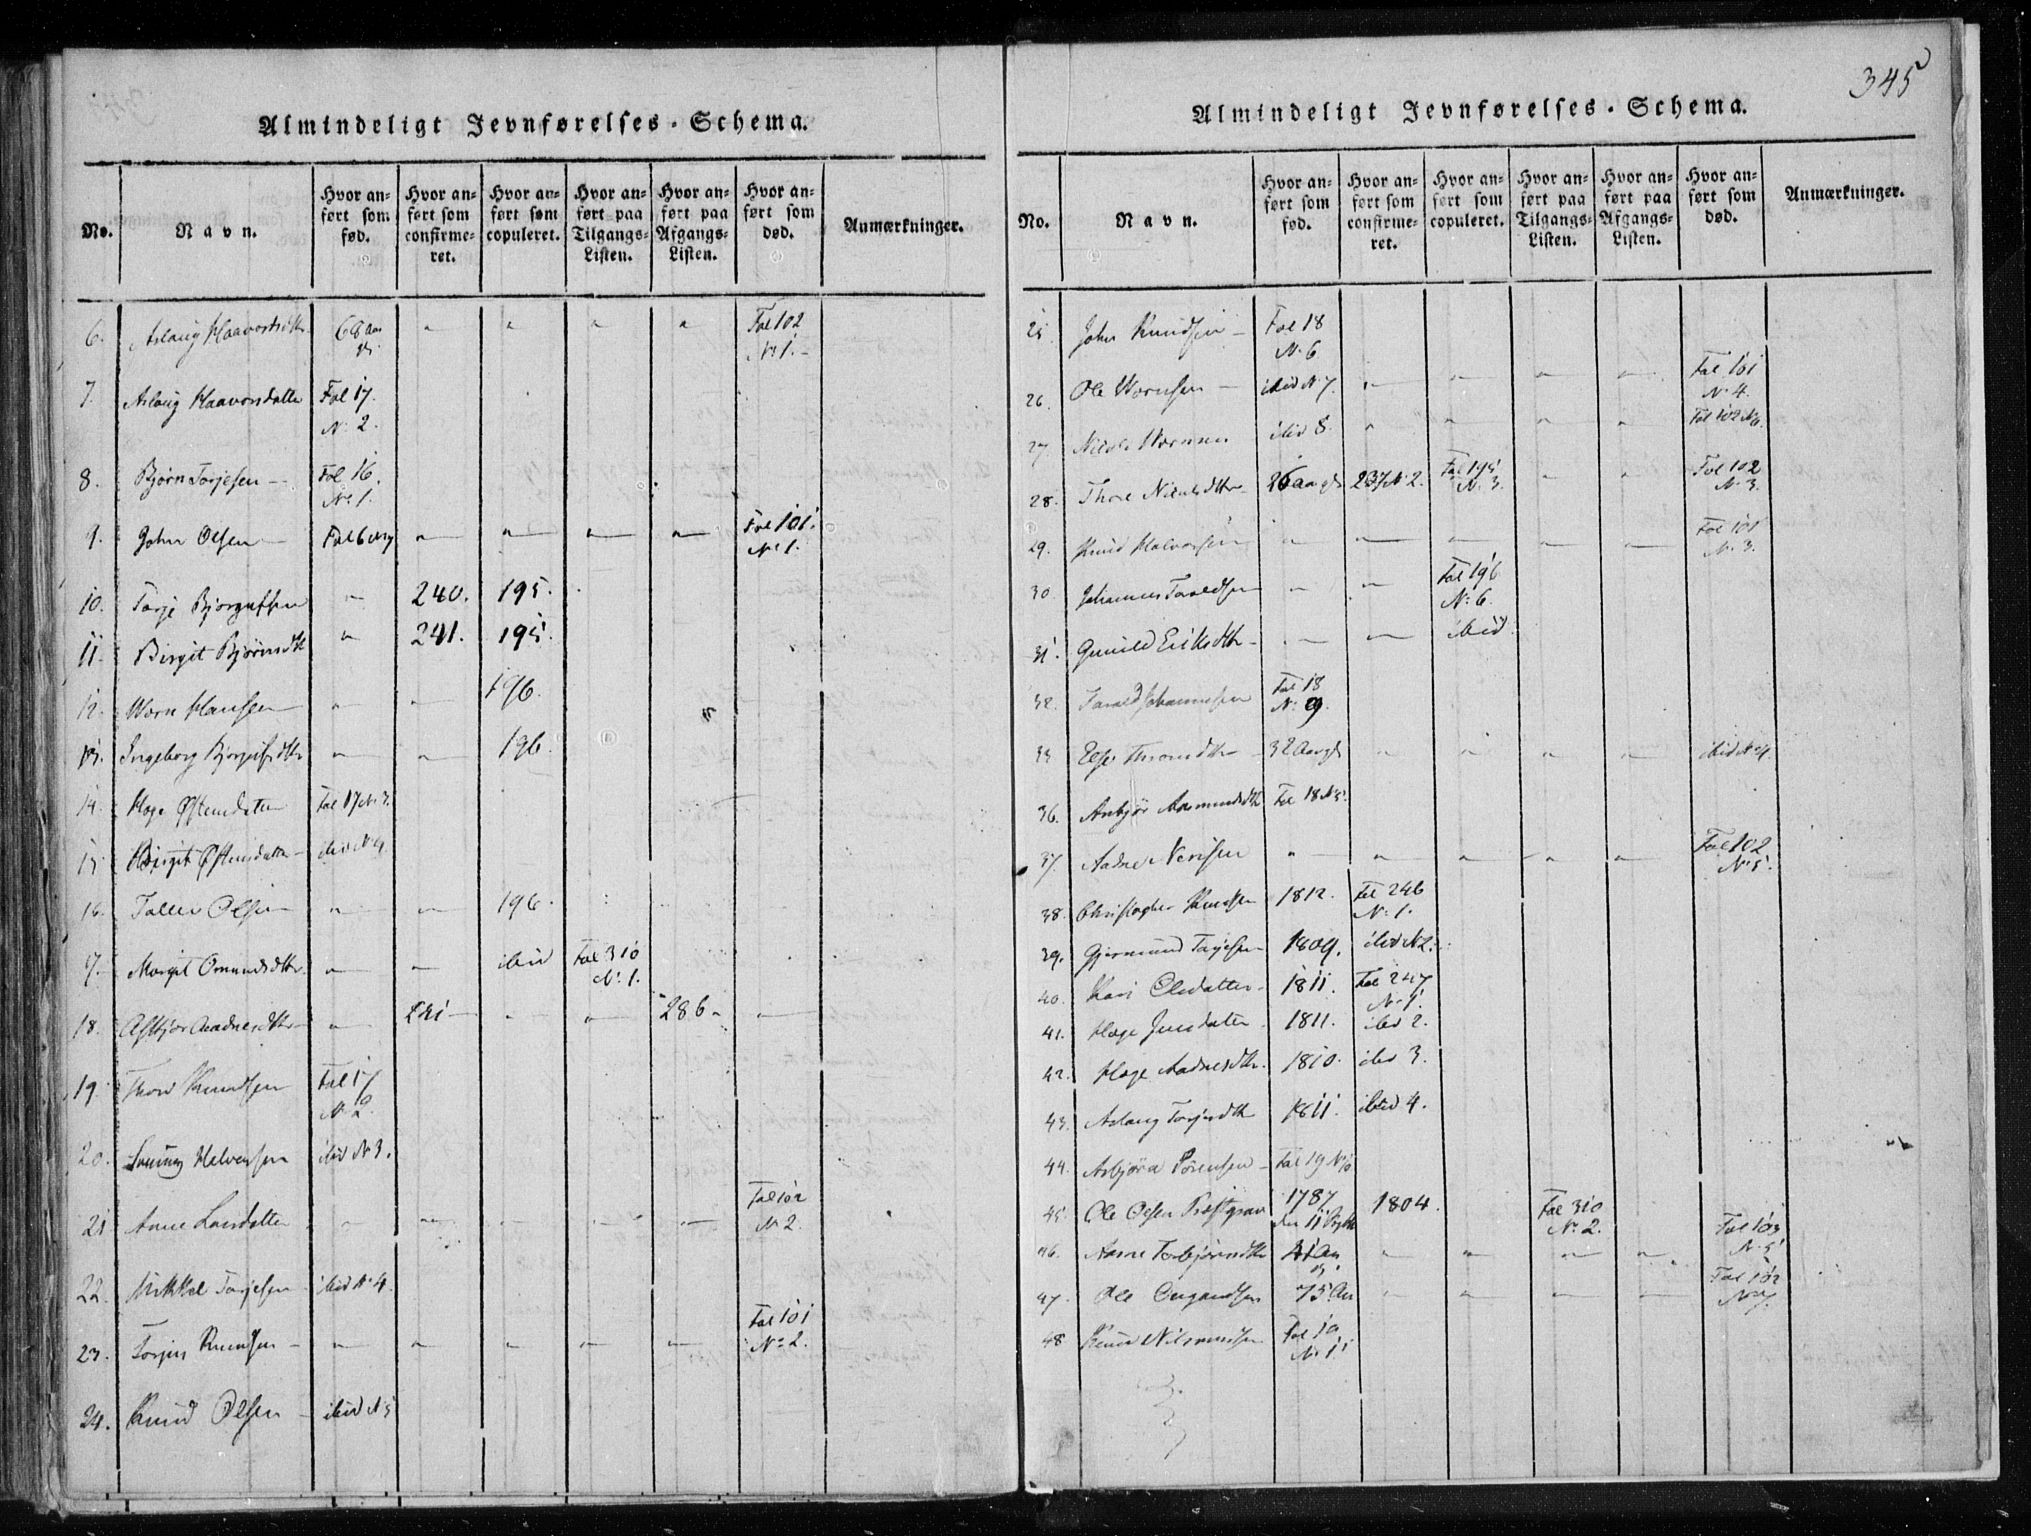 345
Almindeligt Jevnførelses-Schema.
No.
Navn.
Hvor anført som fød.
Hvor anført som confirmeret.
Hvor anført som copuleret.
Hvor anført paa Tilgangs-Listen.
Hvor anført paa Afgangs-Listen.
Hvor anført som død.
Anmærkninger.
6. Aslaug Haavorsdtr. 68 aar gl. " " " " Fol 102 No 1.
7. Aslaug Haavorsdatter Fol 17. No 2.
8. Bjørn Torjesen Fol 16. No 1.
9. John Olsen " " " " Fol 101. No 1.
10. Torje Bjorgufsen " 240. 195.
11. Birgit Bjørnsdtr " 241. 195.
12. Worn Hansen " " 196.
13. Ingeborg Bjorgufsdtr " " 196.
14. Hæge Østensdatter Fol 17 No 3.
15. Birgit Østensdatter ibid No 4
16. Tallev Olsen " " 196.
17. Margit Omundsdtr. " " ibid Fol 310 No 1.
18. Asbjør Aadnesdtr " 241 " " 286 "
19. Thor Knudsen Fol 17 No 2.
20. Halvorsen ibid No 3.
21 Anne Larsdatter " " " " " Fol 102 No 2.
22. Mikkel Torjesen ibid No 4
23. Torjus Knudsen " " " " " Fol 101 No 2.
24. Knud Olsen ibid No 5
Almindeligt Jevnførelses-Schema.
No.
Navn.
Hvor anført som fød.
Hvor anført som confirmeret.
Hvor anført som copuleret.
Hvor anført paa Tilgangs-Listen.
Hvor anført paa Afgangs-Listen.
Hvor anført som død.
Anmærkninger.
25 John Knudsen Fol 18 No 6
26. Ole Wornsen ibid No 7. " " " " Fol 101 No 4.
27. ibid 8. " " " " Fol 102 No 6.
28. Thore Nielsdtr 26 aar gl 237 No 2. Fol 195 No 3. " " Fol 102 No 3.
29. Knud Halvorsen " " " " " Fol 101 No 3.
30. Johannes Taraldsen " " Fol 196 No 6.
31. Gunild Eriksdtr " " ibid.
32. Tarald Johannesen Fol 18 No 9.
32 Aar gl " " " " ibid No 4.
36. Anbjør Aamundsdtr Fol 18 No 5.
37. Aadne Nerisen " " " " " Fol 102 No 5.
38. Christopher Knudsen 1812. Fol 246 No 1.
39. Gjermund Torjesen 1809. ibid No 2.
40. Kari Olsdatter 1811. Fol 247 No 1.
41. Hæge Jensdatter 1811. ibid 2.
42. Hæge Aadnesdtr. 1810. ibid 3.
43. Aslaug Torjesdtr 1811. ibid 4.
44. Asbjørn Sørensen Fol 19 No 10
45. Ole Olsen 1787 den 11 1804. Fol 310 No 2.
46. Anne Torbjørnsdtr 21 Aar gl. " " " " Fol 103 No 5
47. Ole 75 Aar " " " " Fol 102 No 7.
48 Knud Fol 19 No 11